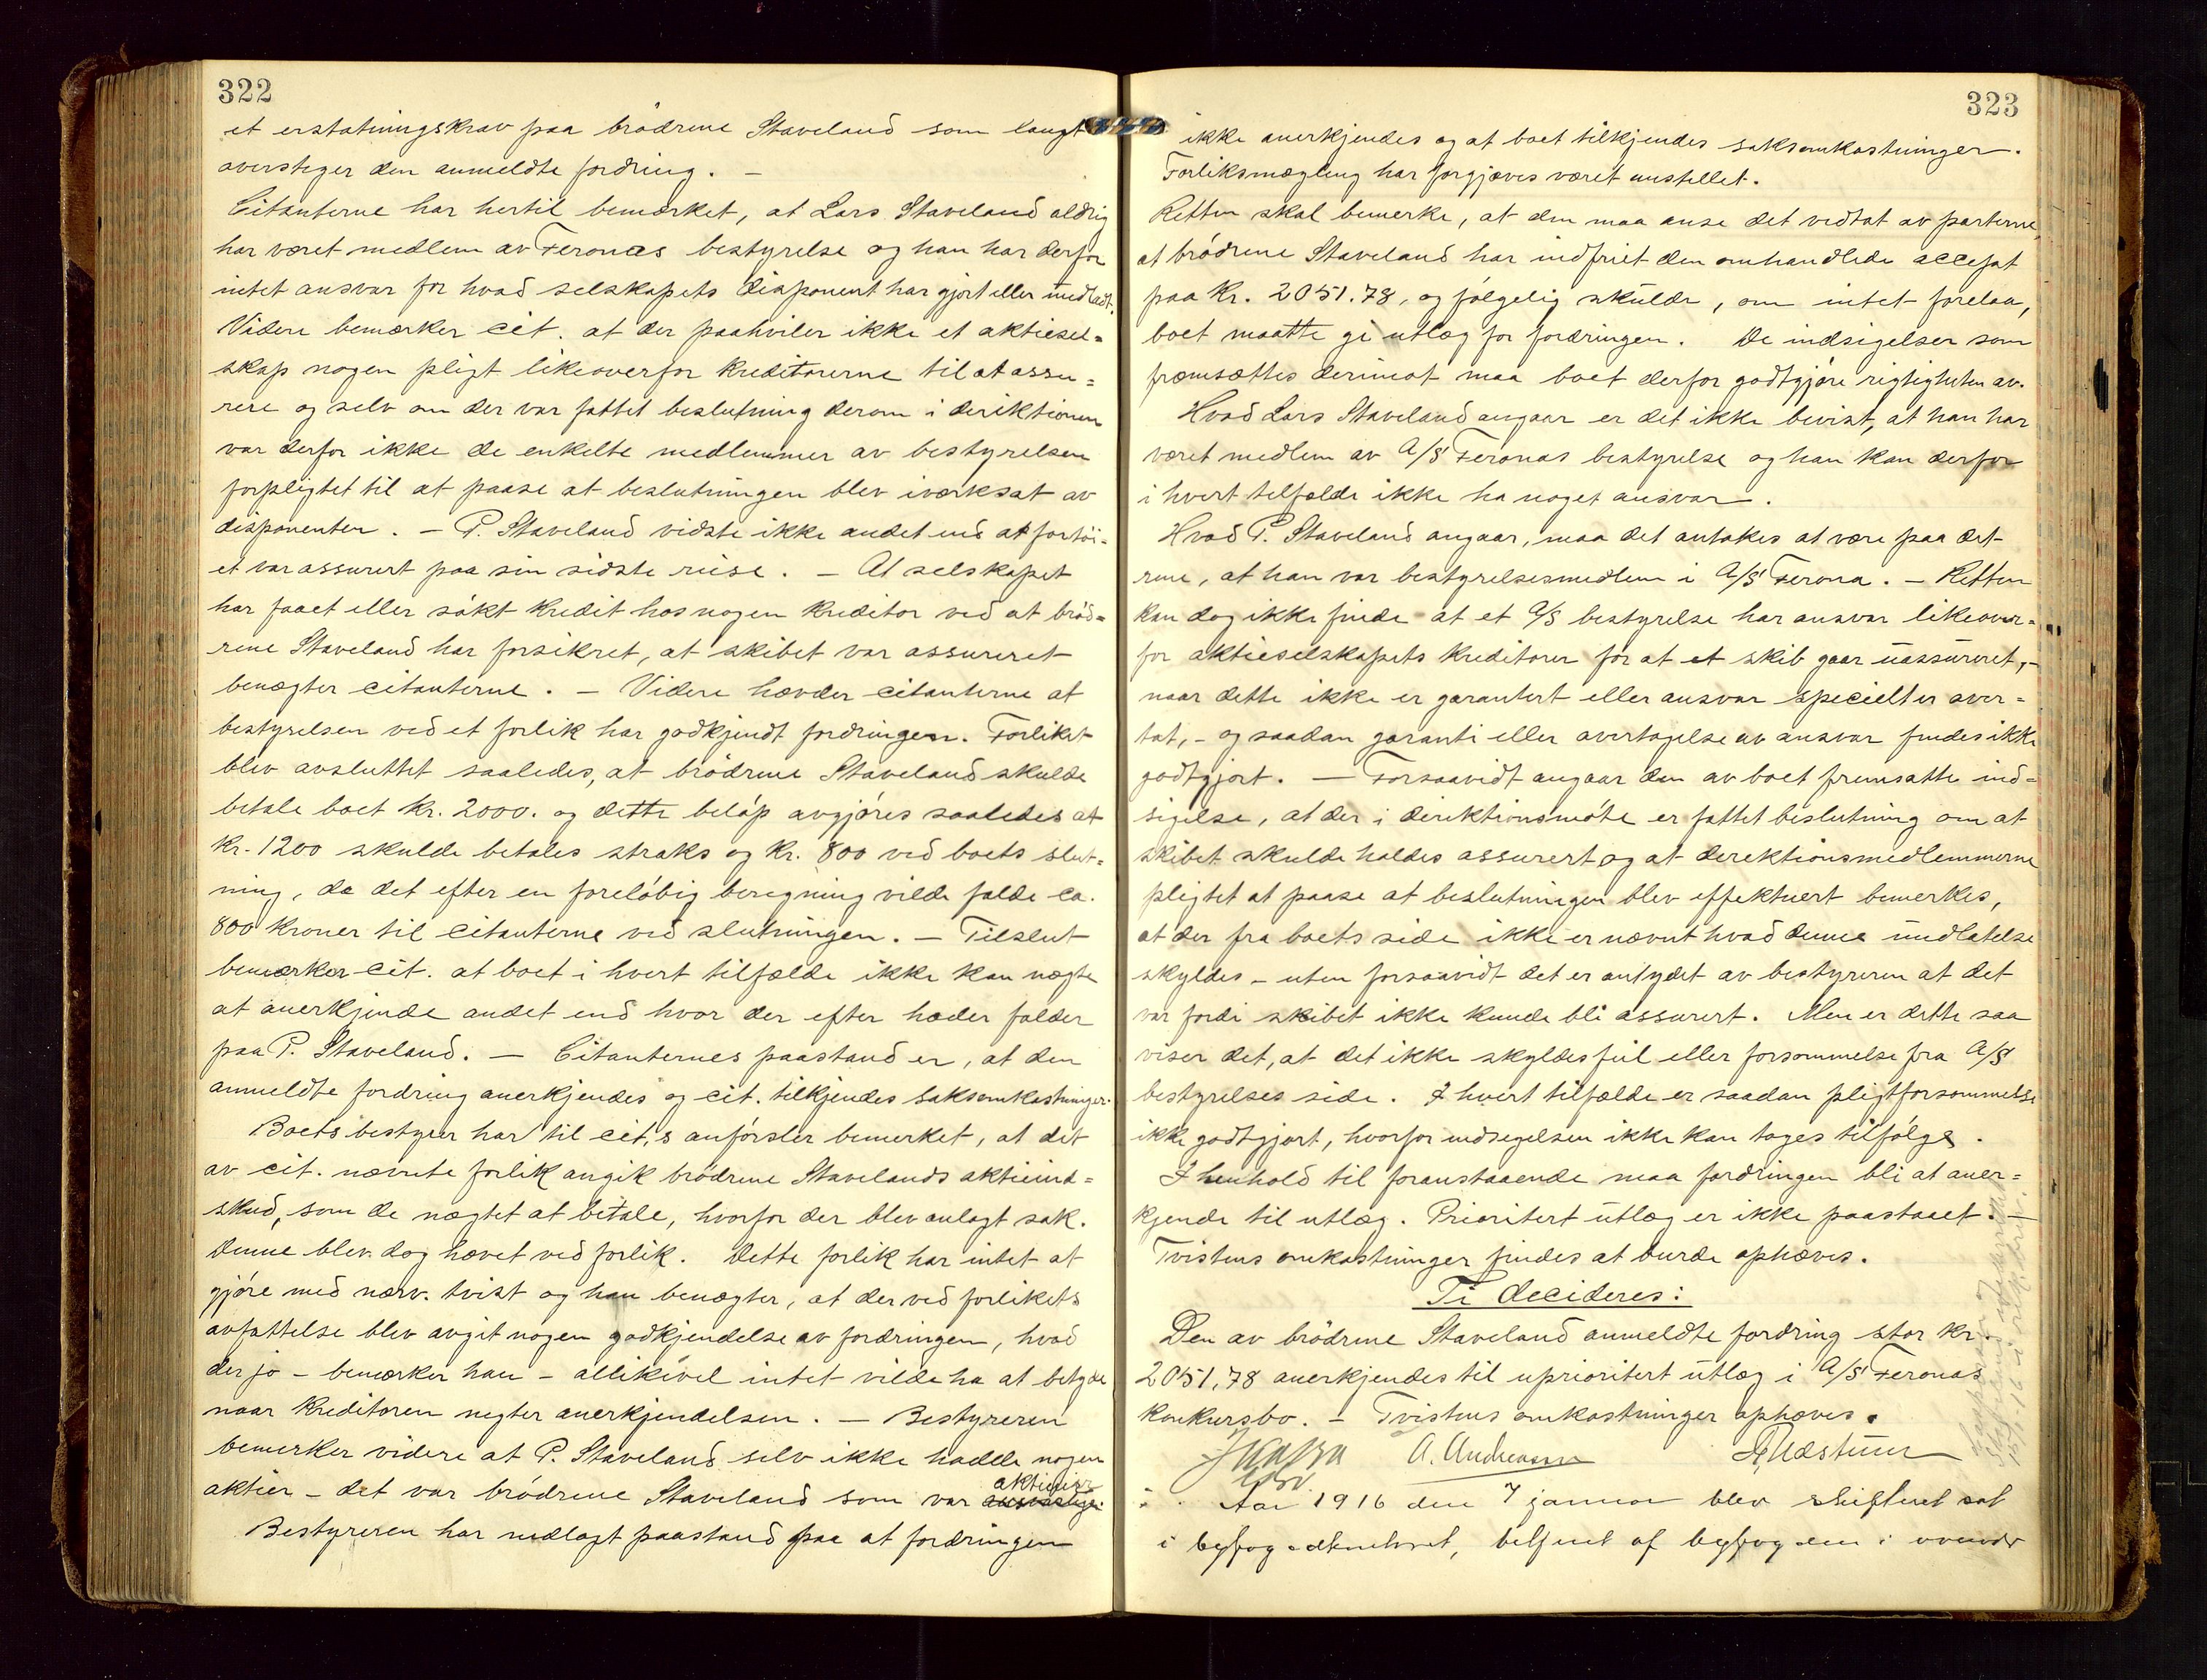 322
et erstatningskrav paa brødrene Staveland som langt
overstiger den anmeldte fordring. –
Citanterne har hertil bemærket, at Lars Staveland aldrig
har været medlem av Feronas bestyrelse og han har derfor
intet ansvar for hvad selskapets disponent har gjort eller undladt.
Videre bemærker cit. at der paahviler ikke et aktiesel=
skap nogen pligt likeoverfor kreditorerne til at assu=
rere og selv om der var fattet beslutning derom i direktionen
var derfor ikke de enkelte medlemmer av bestyrelsen
forpligtet til at paase at beslutningen blev iverksat av
disponenten. – P. Staveland vidste ikke andet end at fartøi=
et var assurert paa sin sidste reise. – At selskapet
har faaet eller søkt kredit hos nogen kreditor ved at brød=
rene Staveland har forsikret, at skibet var assureret
benægter citanterne. – Videre hævder citanterne at
bestyrelsen ved et forlik har godkjendt fordringen. Forliket
blev avsluttet saaledes, at brødrene Staveland skulde
betale boet kr. 2000. og dette beløp avgjøres saaledes at
kr. 1200 skulde betales straks og kr. 800 ved boets slut=
ning, da det efter en foreløbig beregning vilde falde ca.
800 kroner til citanterne ved slutningen. – Tilslut
bemærker cit. at boet i hvert tilfælde ikke kan negte
at anerkjende andet end hvor der efter hoder falder
paa P. Staveland. – Citanternes paastand er, at den
anmeldte fordring anerkjendes og cit. tilkjendes saksomkostninger.
Boets bestyrer har til cit,s anførsler bemerket, at det
av cit. nævnte forlik angik brødrene Stavelands aktieind=
skud, som de nægtet at betale, hvorfor der blev anlagt sak.
Denne blev dog hævet ved forlik. Dette forlik har intet at
gjøre med nærv. tvist og han benægter, at der ved forlikets
avfattelse blev avgit nogen godkjendelse av fordringen, hvad
der jo – bemærker han – allikevel intet vilde ha at betyde
naar kreditoren negter anerkjendelsen. – Bestyreren
bemerker videre at P. Staveland selv ikke hadde nogen
aktier – det var brødrene Staveland som var aktionær
Bestyreren har nedlagt paastand paa at fordringen
323
ikke anerkjendes og at boet tilkjendes saksomkostninger.
Forliksmægling har forgjæves været anstillet.
Retten skal bemerke, at den maa anse det vedtat av parterne,
at brødrene Staveland har indfriet den omhandlede accept
paa kr. 2051.78, og følgelig skulde, om intet forelaa,
boet maatte gi utlæg for fordringen. De indsigelser som
fremsættes derimot maa boet derfor godtgjøre rigtigheten av.
Hvad Lars Staveland angaar er det ikke bevist, at han har
været medlem av A/S Feronas bestyrelse og han kan derfor
i hvert tilfælde ikke ha noget ansvar.
Hvad P. Staveland angaar, maa det antakes at være paa det
rene, at han var bestyrelsesmedlem i A/S Ferona. – Retten
kan dog ikke finde at et A/S bestyrelse har ansvar likeover=
for aktieselskapets kreditorer for at et skib gaar uassureret, –
naar dette ikke er garantert eller ansvar specielt er over=
tat, – og saadan garanti eller overtagelse av ansvar findes ikke
godtgjort. – Forsaavidt angaar den av boet fremsatte ind=
sigelse, at der i direktionsmøte er fattet beslutning om at
skibet skulde holdes assurert og at derektionsmedlemmerne
pligtet at paase at beslutningen blev effektuert bemerkes,
at der fra boets side ikke er nævnt hvad denne undlatelse
skyldes – uten forsaavidt det er antydet av bestyreren at det
var fordi skibet ikke kunde bli assurert. Men er dette saa
viser det, at det ikke skyldes feil eller forsømmelse fra A/S
bestyrelses side. I hvert tilfælde er saadan pligtforsømmelse
ikke godtgjort, hvorfor indsigelsen ikke kan tages tilfølge.
I henhold til foranstaaende maa fordringen bli at aner=
kjende til utlæg. Prioritert utlæg er ikke paastaaet. –
Tvistens omkostninger findes at burde ophæves.
Ti decideres:
Den av brødrene Staveland anmeldte fordring stor kr.
2051,78 anerkjendes til uprioritert utlæg i A/S Feronas
konkursbo. – Tvistens omkostninger ophæves.
A. Andreassen
Aar 1916 den 7 januar blev skifteret sat
i byfogedkontoret, betjent af byfogden i